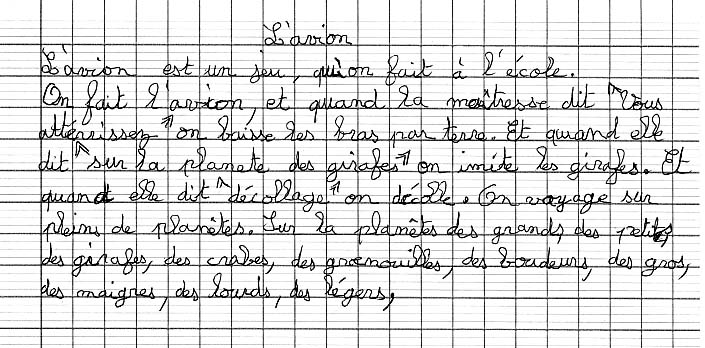 L'avion
L'avion est un jeu, qu'on fait à l'école.
On fait l'avion, et quand la maîtresse dit "Vous
attérrissez" on baisse les bras par terre. Et quand elle
dit "sur la planète des girafes" on imite les girafes. Et
quand elle dit "décollage" on décolle. On voyage sur
pleins de planètes. Sur la planètes des grands, des petits,
des girafes, des crabes, des grenouilles, des boudeurs, des gros,
des maigres, des lourds, des légers,